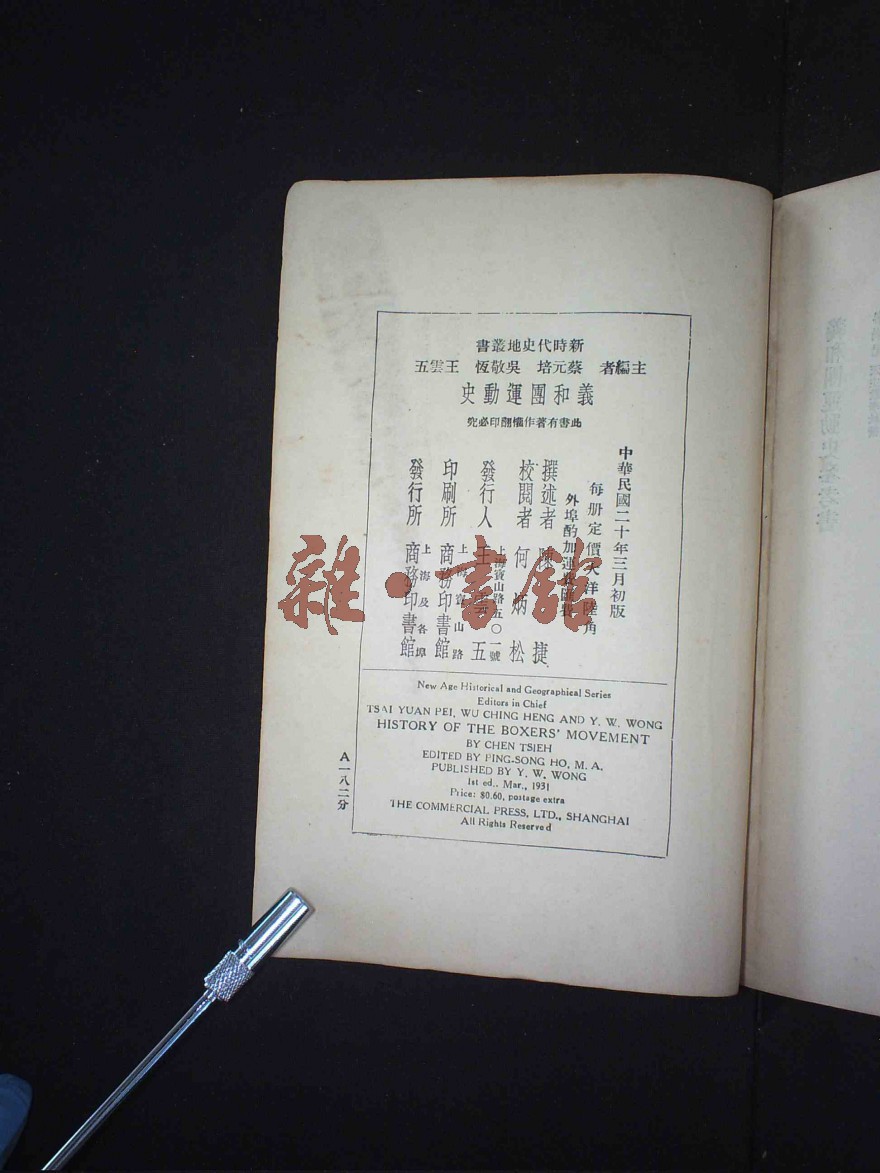 新時代史地叢書
主編者 蔡元培 吳敬恆 王雲五
義和團運動史
此書有著作權翻印必究
中華民國二十年三月初版
每册定價大洋陸角
外埠酌加運費匯費
撰述者 陳捷
校閱者 何炳松
發行人 王雲五
上海寶山路五〇一號
印刷所 商務印書館
上海寶山路
發行所 商務印書館
上海及各埠
New Age Historical and Geographical Series
Editors in Chief
TSAI YUAN PEI, WU CHING HENG AND Y. W. WONG
HISTORY OF THE BOXERS' MOVEMENT
BY CHEN TSIEH
EDITED BY PING-SONG HO, M. A.
PUBLISHED BY Y. W. WONG
1st ed., Mar., 1931
Price: $0.60, postage extra
THE COMMERCIAL PRESS, LTD., SHANGHAI
All Rights Reserved
A一八二分
雜·書館